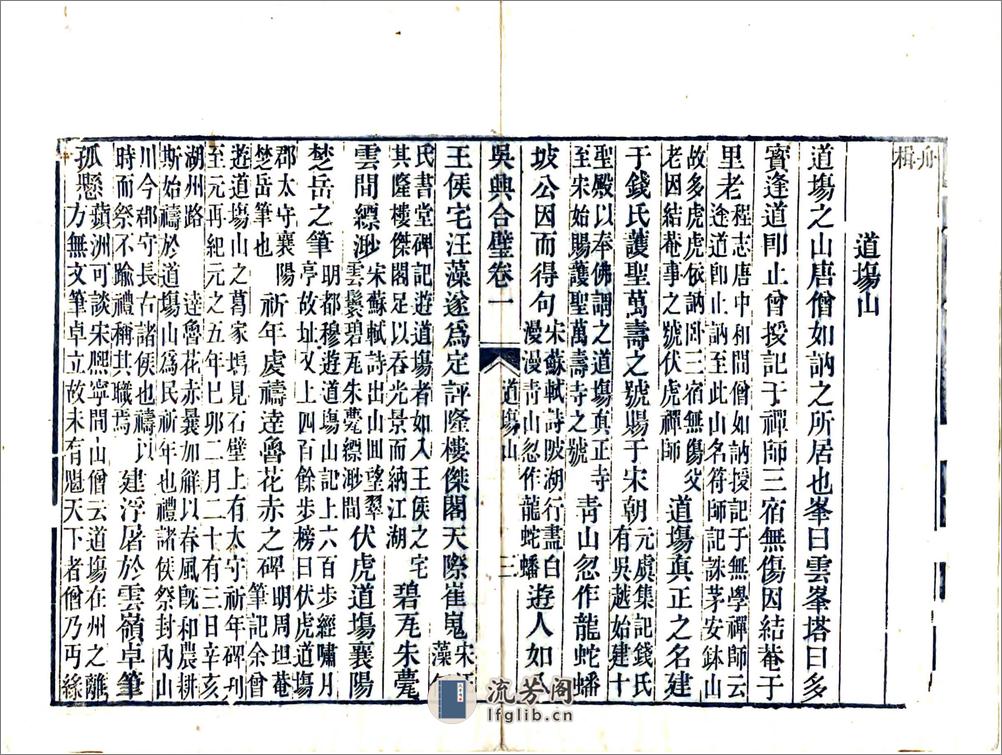 舟
楫
道塲山
道塲之山唐僧如訥之所居也峯曰雲峯塔曰多
寳逢道卽止曾授記于禪師三宿無傷因結菴于
里老
程志唐中和間僧如訥授記于無學禪師云
途道卽止訥至此山名符師記誅茅安鉢山
故多虎虎依訥卧三宿無傷父
老因結菴事之號伏虎禪師
道塲真正之名建
于錢氏護聖萬壽之號賜于宋朝
元虞集記錢氏
有吳越始建十
聖殿以奉佛謂之道塲真正寺
至宋始賜護聖萬壽寺之號
靑山忽作龍蛇蟠
坡公因而得句
宋蘇軾詩陂湖行盡白
漫漫靑山忽作龍蛇蟠
遊人如入
吳興合璧卷一
道塲山
三
王侯宅汪藻遂爲定評隆樓傑閣天際崔嵬
宋汪
藻
氏書堂碑記遊道塲者如入王侯之宅
其隆樓傑閣足以吞光景而納江湖
碧瓦朱甍
雲間縹渺
宋蘇軾詩出山囬望翠
雲鬟碧瓦朱甍縹渺間
伏虎道塲襄陽
椘岳之筆
明都穆遊道塲山記上六百步經嘯月
亭故址又上四百餘步榜曰伏虎道塲
郡太守襄陽
椘岳筆也
祈年處禱逹魯花赤之碑
明周坦菴
筆記余曾
遊道塲山之葛家塢見石壁上有太守祈年碑刊
至元再紀元之五年巳夘二月二十有三日辛亥
湖州路 逹魯花赤曩加觧以春風旣和農耕
斯始禱於道塲山爲民祈年也禮諸侯祭封內山
川今郡守長右諸侯也禱以
時而祭不踰禮稱其職焉
建浮屠於雲嶺卓筆
孤懸
蘋洲可談宋熙寧間山僧云道塲在州之離
方無文筆卓立故未有魁天下者僧乃丏緣
流芳阁
lfglib.cn